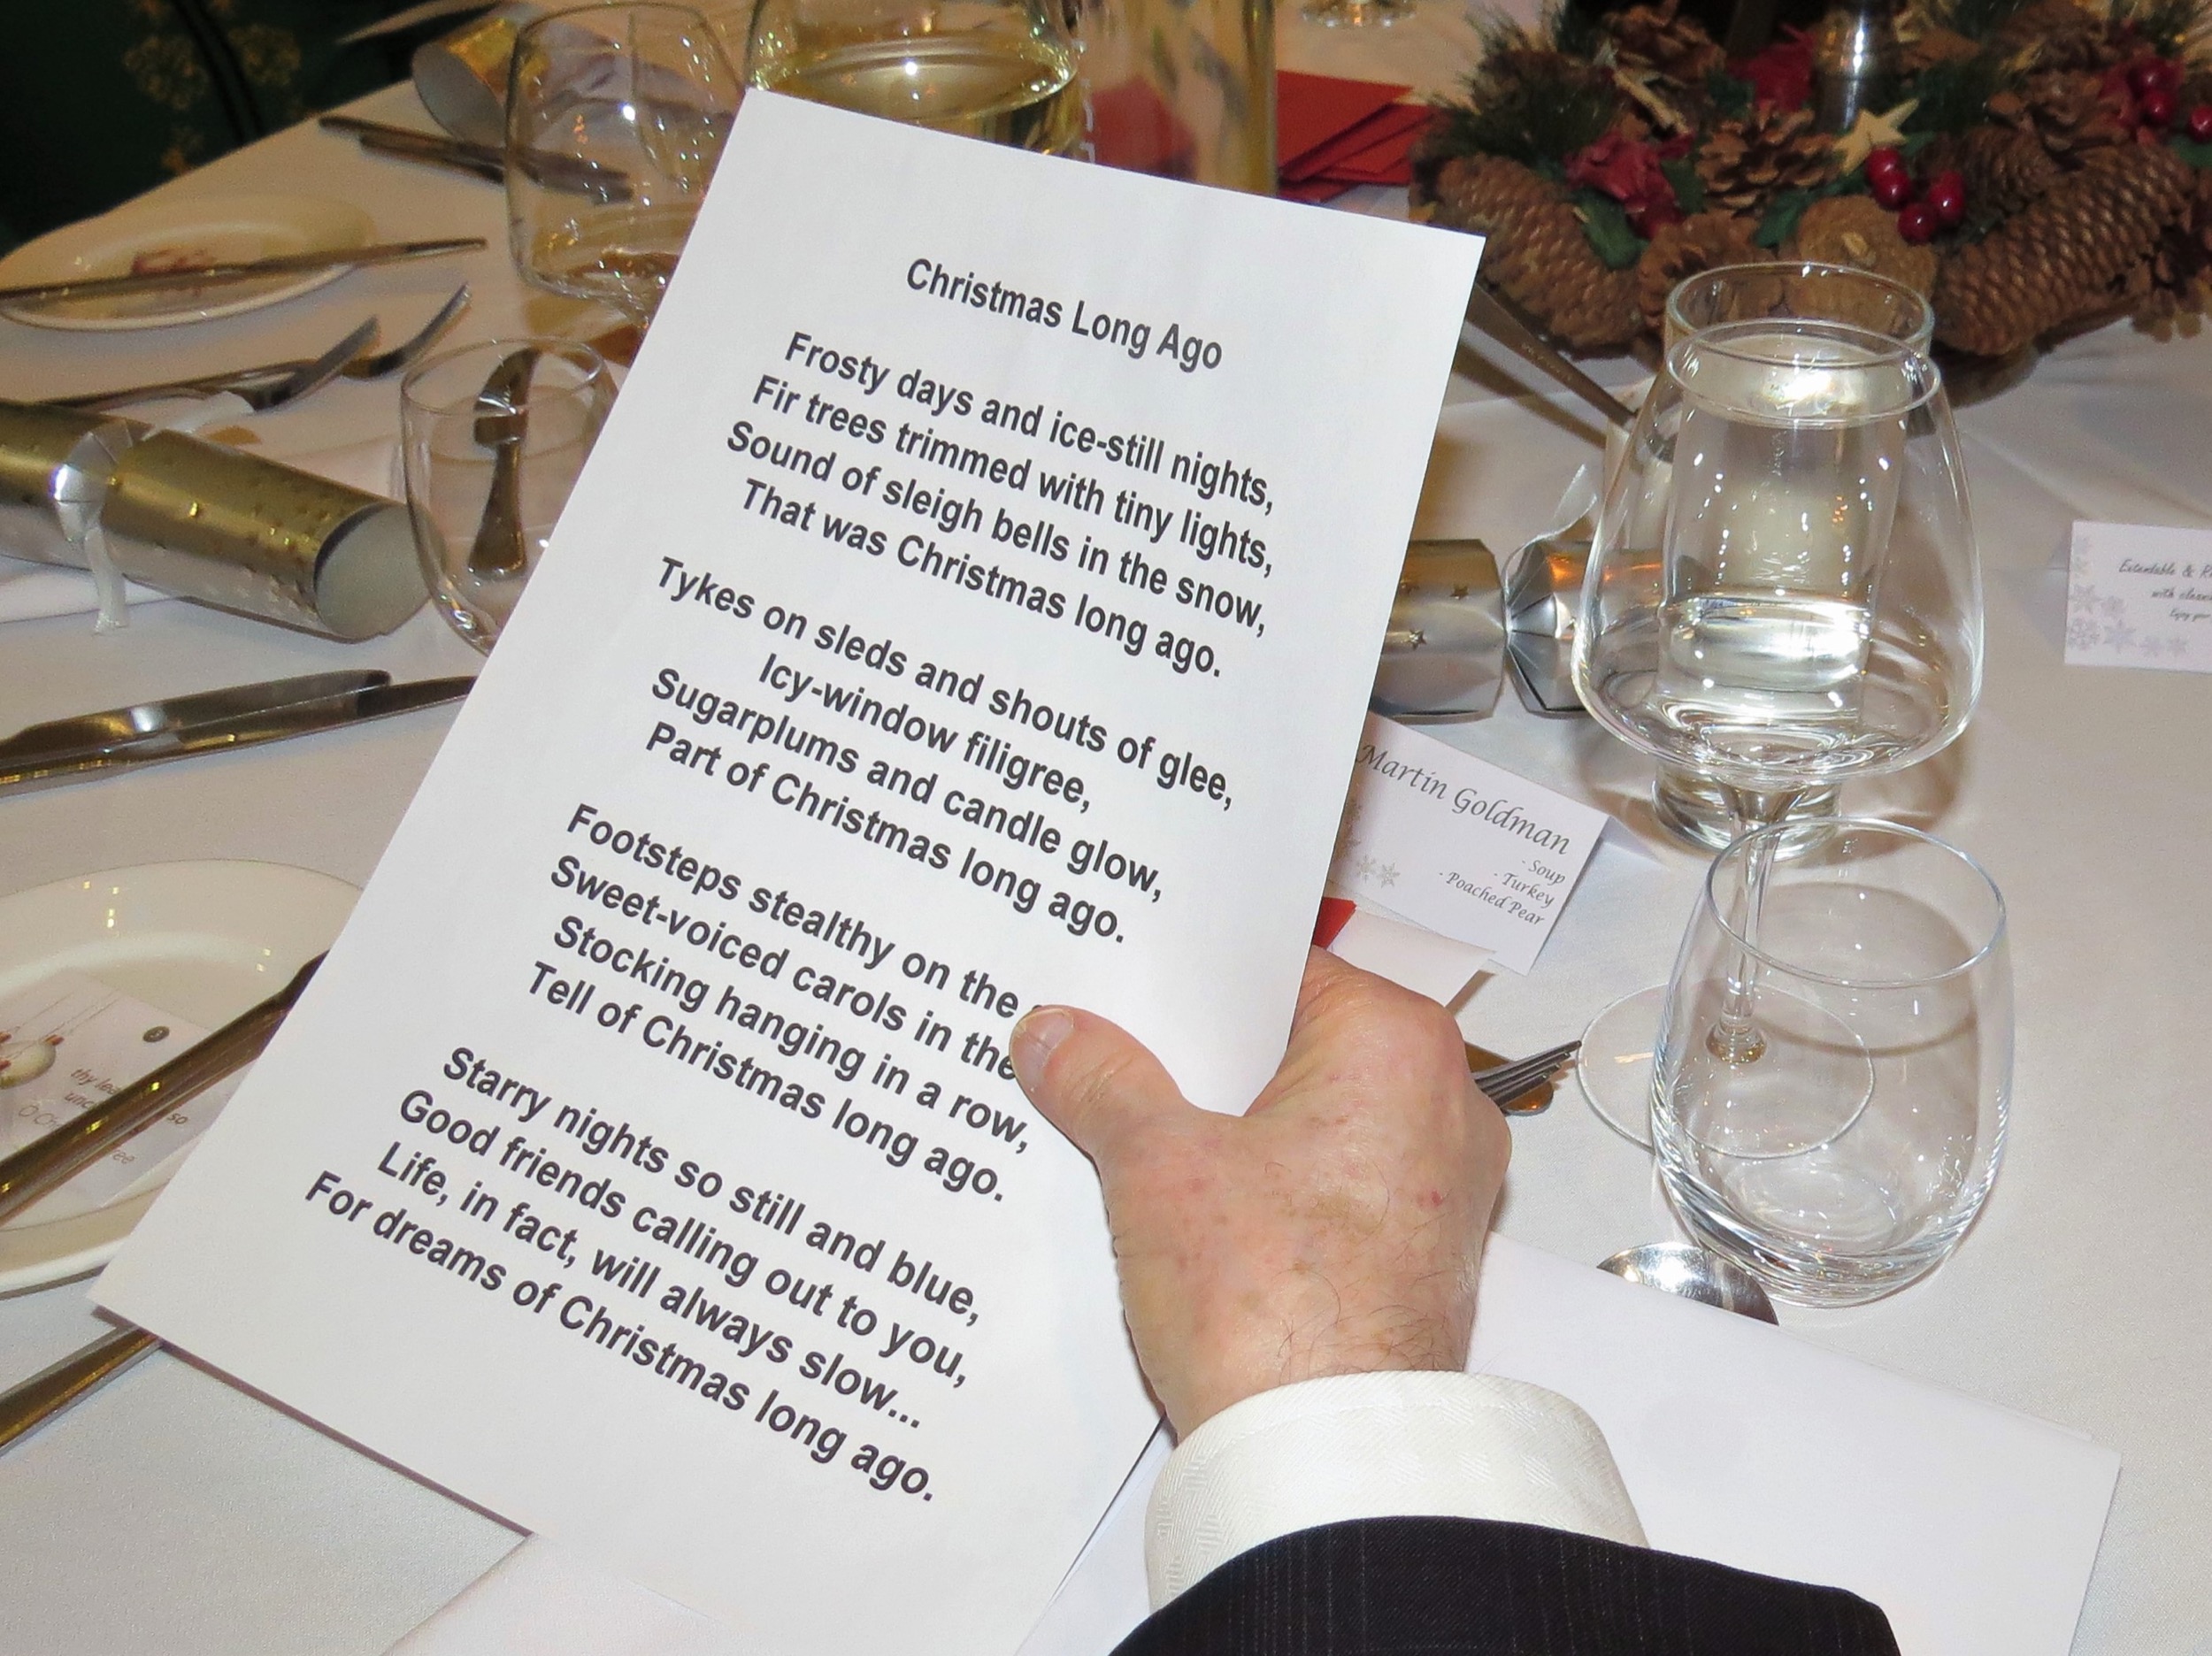 Christmas Long Ago
Frosty days and ice-still nights,
Fir trees trimmed with tiny lights,
Sound of sleigh bells in the snow,
That was Christmas long ago.
Tykes on sleds and shouts of glee,
Icy-window filigree,
Sugarplums and candle glow,
Part of Christmas long ago.
Footsteps stealthy on the
Sweet-voiced carols in the
Stocking hanging in a row,
Tell of Christmas long ago.
Starry nights so still and blue,
Good friends calling out to you,
Life, in fact, will always slow...
For dreams of Christmas long ago.
Martin Goldman
- Soup
- Turkey
- Poached Pear
Extendable &
with
thy
so